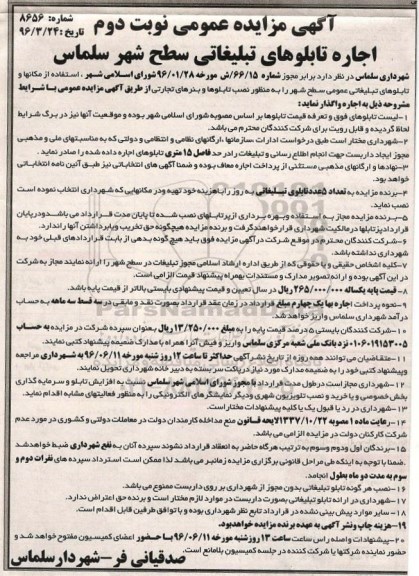 شماره: ۸۶۵۶
تاریخ: ۹۶/۳/۲۴
آگهی مزایده عمومی نوبت دوم
اجاره تابلوهای تبلیغاتی سطح شهر سلماس
شهرداری سلماس در نظر دارد برابر مجوز شماره ۶۶/۱۵/ش مورخه ۹۶/۰۱/۲۸ شورای اسلامی شهر ، استفاده از مکانها و
تابلوهای تبلیغاتی عمومی سطح شهر را به منظور نصب تابلوها و بنرهای تجارتی از طریق آگهی مزایده عمومی با شرایط
مشروحه ذیل به اجاره واگذار نماید:
۱-لیست تابلوهای فوق و تعرفه قیمت تابلوها بر اساس مصوبه شورای اسلامی شهر بوده و موقعیت آنها نیز در برگ شرایط
لحاظ گردیده و قابل رویت برای شرکت کنندگان محترم می باشد.
۲-شهرداری مختار است طبق درخواست ادارات سازمانها ،ارگانهای نظامی و انتظامی و دولتی که به مناسبتهای ملی و مذهبی
مجوز ایجاد داربست جهت انجام اطلاع رسانی و تبلیغات را در حد فاصل ۱۵ متری تابلوهای اجاره داده شده را صادر نماید.
۳-نهادها و ارگانهای مذهبی مستثنی از پرداخت اجاره معاف بوده و ضمنا آگهی های انتخاباتی نیز طبق آئین نامه انتخاباتی
خواهد بود.
۴-برنده مزایده به تعداد ۵ عدد تابلوی تبلیغاتی روز را با هزینه خود تهیه و در مکانهایی که شهرداری انتخاب نموده است
نصب نماید.
۵-برنده مزایده مجاز به استفاده و بهره برداری از پرتابلهای نصب شده تا پایان مدت قرارداد می باشد و در پایان
قرارداد پرتابلها در مالکیت شهرداری قرار خواهند گرفت و برنده مزایده هیچگونه حق تخریب و یا برداشتن آنها را ندارد.
۶-شرکت کنندگان محترم در موقع شرکت در آگهی مزایده فوق باید هیچ گونه بدهی از بابت قراردادهای قبلی خود به
شهرداری نداشته باشد.
۷-کلیه اشخاص حقیقی و یا حقوقی که از طریق اداره ارشاد اسلامی مجوز تبلیغات در سطح شهر را ارائه نمایند مجاز به شرکت
در این آگهی بوده و ارائه تصویر مدارک و مستندات بهمراه پیشنهاد قیمت الزامی است.
۸- قیمت پایه یکساله ۲۶۵/۰۰۰/۰۰۰ ریال در سال تعیین و قیمت پیشنهادی بایستی بالاتر از قیمت پایه باشد.
۹-نحوه پرداخت اجاره بها یک چهارم مبلغ قرارداد در زمان عقد قرارداد بصورت نقد و مابقی در سه قسط سه ماهه به حساب
درآمد شهرداری سلماس واریز خواهد شد.
۱۰-شرکت کنندگان بایستی ۵ درصد قیمت پایه را به مبلغ ۱۳/۲۵۰/۰۰۰ ریال بعنوان سپرده شرکت در مزایده به حساب
۰۱۰۶۰۱۹۱۵۳۰۰۵ نزد بانک ملی شعبه مرکزی سلماس واریز و فیش آنرا همراه با مدارک ضمیمه پیشنهاد کتبی نمایند.
۱۱-متقاضیان می توانند همه روزه از تاریخ نشر آگهی حداکثر تا ساعت ۱۲ روز شنبه مورخه ۹۶/۰۶/۱۱ به شهرداری مراجعه
و پیشنهاد کتبی خود را به ضمیمه مدارک مورد نیاز در پاکت سربسته به دبیرخانه شهرداری تحویل نمایند.
۱۲-شهرداری مجاز است در طول مدت قرارداد با مجوز شورای اسلامی شهر سلماس نسبت به افزایش تابلو و سرمایه گذاری
بخش خصوصی و یا خرید و نصب تلویزیون شهری و دیگر نمایشگرهای الکترونیکی را به منظور فعالیتهای مشابه اقدام نماید.
۱۳-شهرداری در رد یا قبول یک یا کلیه پیشنهادات مختار است.
۱۴-رعایت ماده ۱ مصوبه ۱۳۳۷/۱۰/۲۲ لایحه قانون منع مداخله کارمندان دولت در معاملات دولتی و کشوری در مورد عدم
شرکت کارکنان دولت در مزایده الزامی می باشد.
۱۵-برندگان اول و دوم و سوم به ترتیب هرگاه حاضر به انعقاد قرارداد نشوند سپرده آنان به نفع شهرداری ضبط خواهد شد
.ضمنا با توجه به اینکه طی مراحل قانونی برگزاری مزایده زمانبر می باشد لذا ممکن است استرداد سپرده های نفرات دوم و
سوم به مدت دو ماه بطول انجامد.
۱۶-نصب هر گونه تابلو تبلیغاتی بدون مجوز از شهرداری بر روی داربست ممنوع می باشد.
۱۷-شهرداری در ارائه تابلو تبلیغاتی بصورت داربست در موارد لازم مختار است و برنده حق اعتراض ندارد.
۱۸- سایر موارد پیش بینی نشده در قرارداد تابع نظر شهرداری بوده و با توافق طرفین قابل اقدام است.
۱۹-هزینه چاپ و نشر آگهی به عهده برنده مزایده خواهد بود.
۲۰-پیشنهادات واصله راس ساعت ۱۳ روز شنبه مورخه ۹۶/۰۶/۱۱ با حضور اعضای کمیسیون مفتوح خواهد شد و
حضور نماینده شرکتها یا شرکت کننده در جلسه کمیسیون بلامانع است.
صدقیانی فر-شهردار سلماس